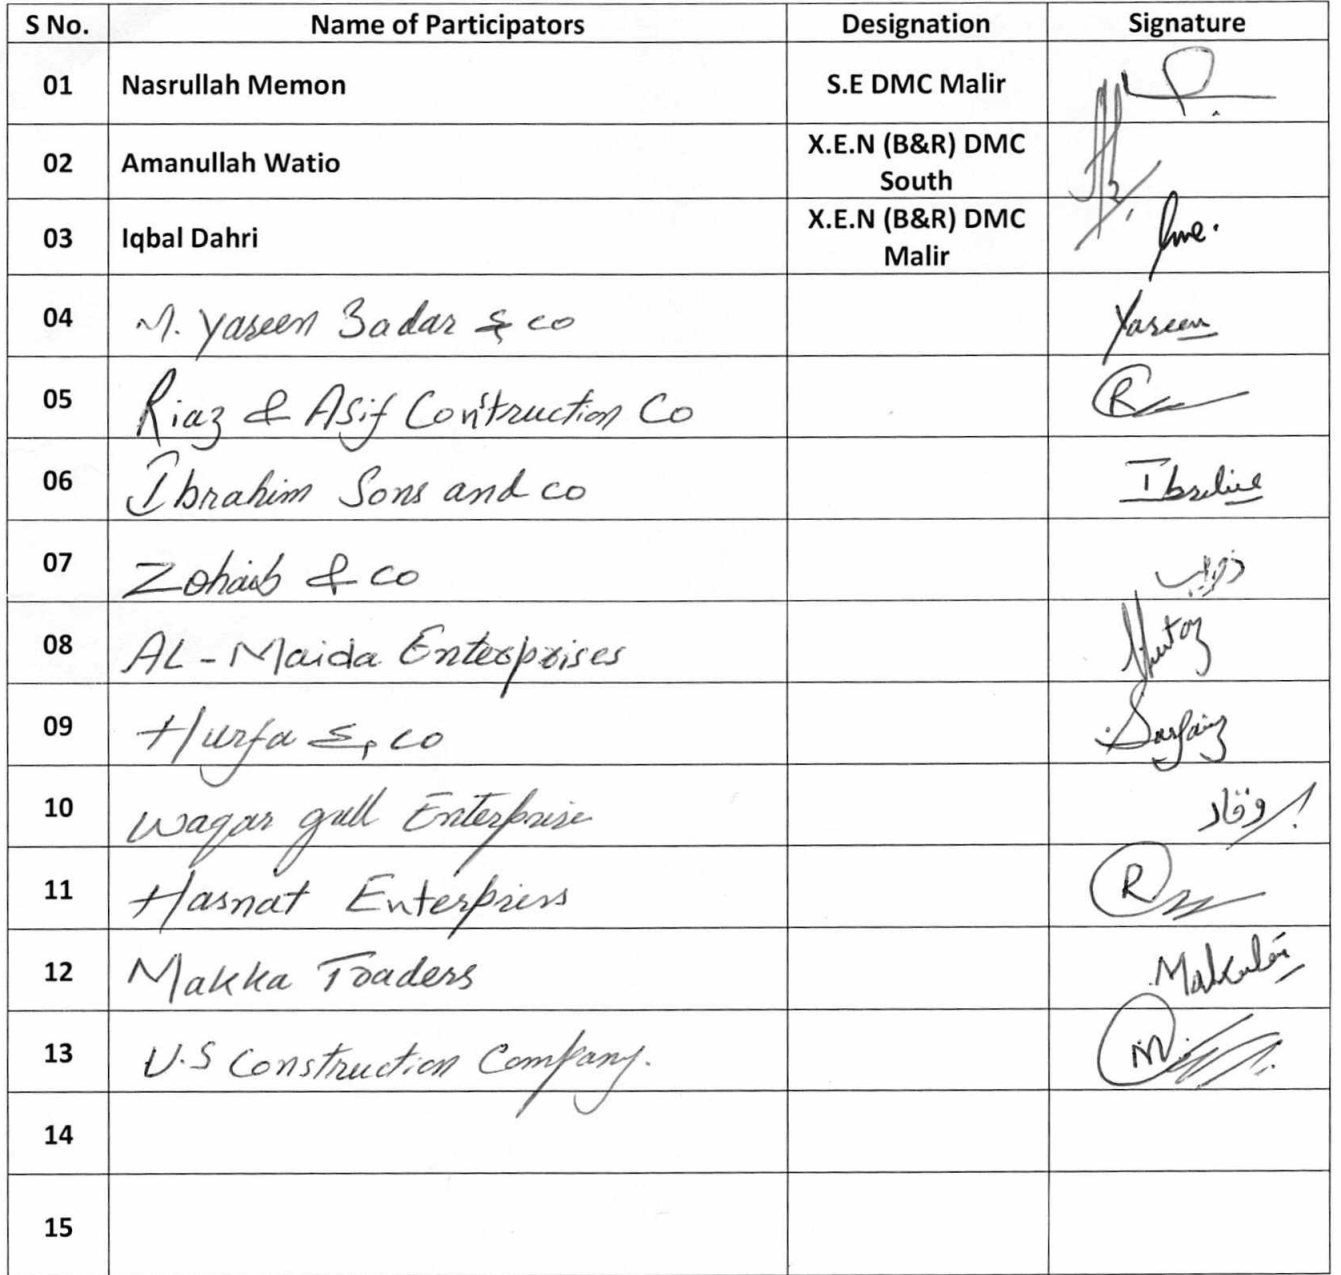 S No. Name of Participators Designation Signature
01 Nasrullah Memon S.E DMC Malir
02 Amanullah Watio X.E.N (B&R) DMC
South
03 Iqbal Dahri X.E.N (B&R) DMC
Malir
04 M. Yaseen Badar & co Yaseen
05 Riaz & Asif Contruction Co R
06 Ibrahim Sons and co
07 Zohaib & co
08 AL-Maida Enterprises
09 Hurfa & co
10 Waqar gull Enterprise وقار
11 Hasnat Enterpriss R
12 Makka Traders
13 U.S Construction Company. M
14
15